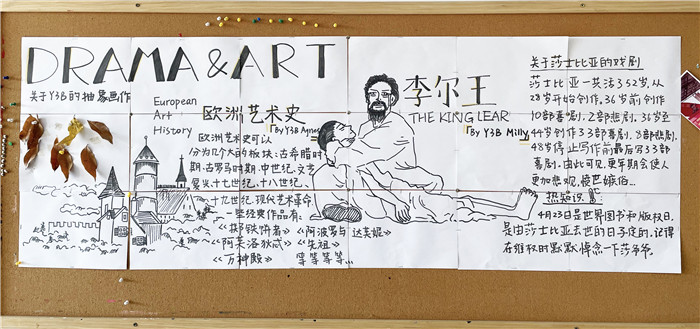 DRAMA&ART
关于Y3B的抽象画作
European
Art
History
欧洲艺术史
By Y3B Agnes
欧洲艺术史可以
分为几个大的板块:古希腊时
期、古罗马时期、中世纪、文艺
复兴、十七世纪、十八世纪、
十九世纪、现代艺术革命.
一些经典作品有:
《掷铁饼者》《阿波罗与达芙妮》
《阿芙洛狄忒》《朱祖》
《万神殿》 等等等等...
李尔王
THE KING LEAR
By Y3B Milly
关于莎士比亚的戏剧
莎士比亚一共活了52岁,从
28岁开始创作,36岁前创作
10部喜剧,2部悲剧,36岁至
44岁创作了3部喜剧,8部悲剧.
48岁停止写作前最后写了3部
喜剧.由此可见,更年期会使人
更加悲观,愤世嫉俗...
热知识:
4月23日是世界图书和版权日,
是由莎士比亚去世的日子定的,记得
在维权时默默悼念一下莎爷爷.